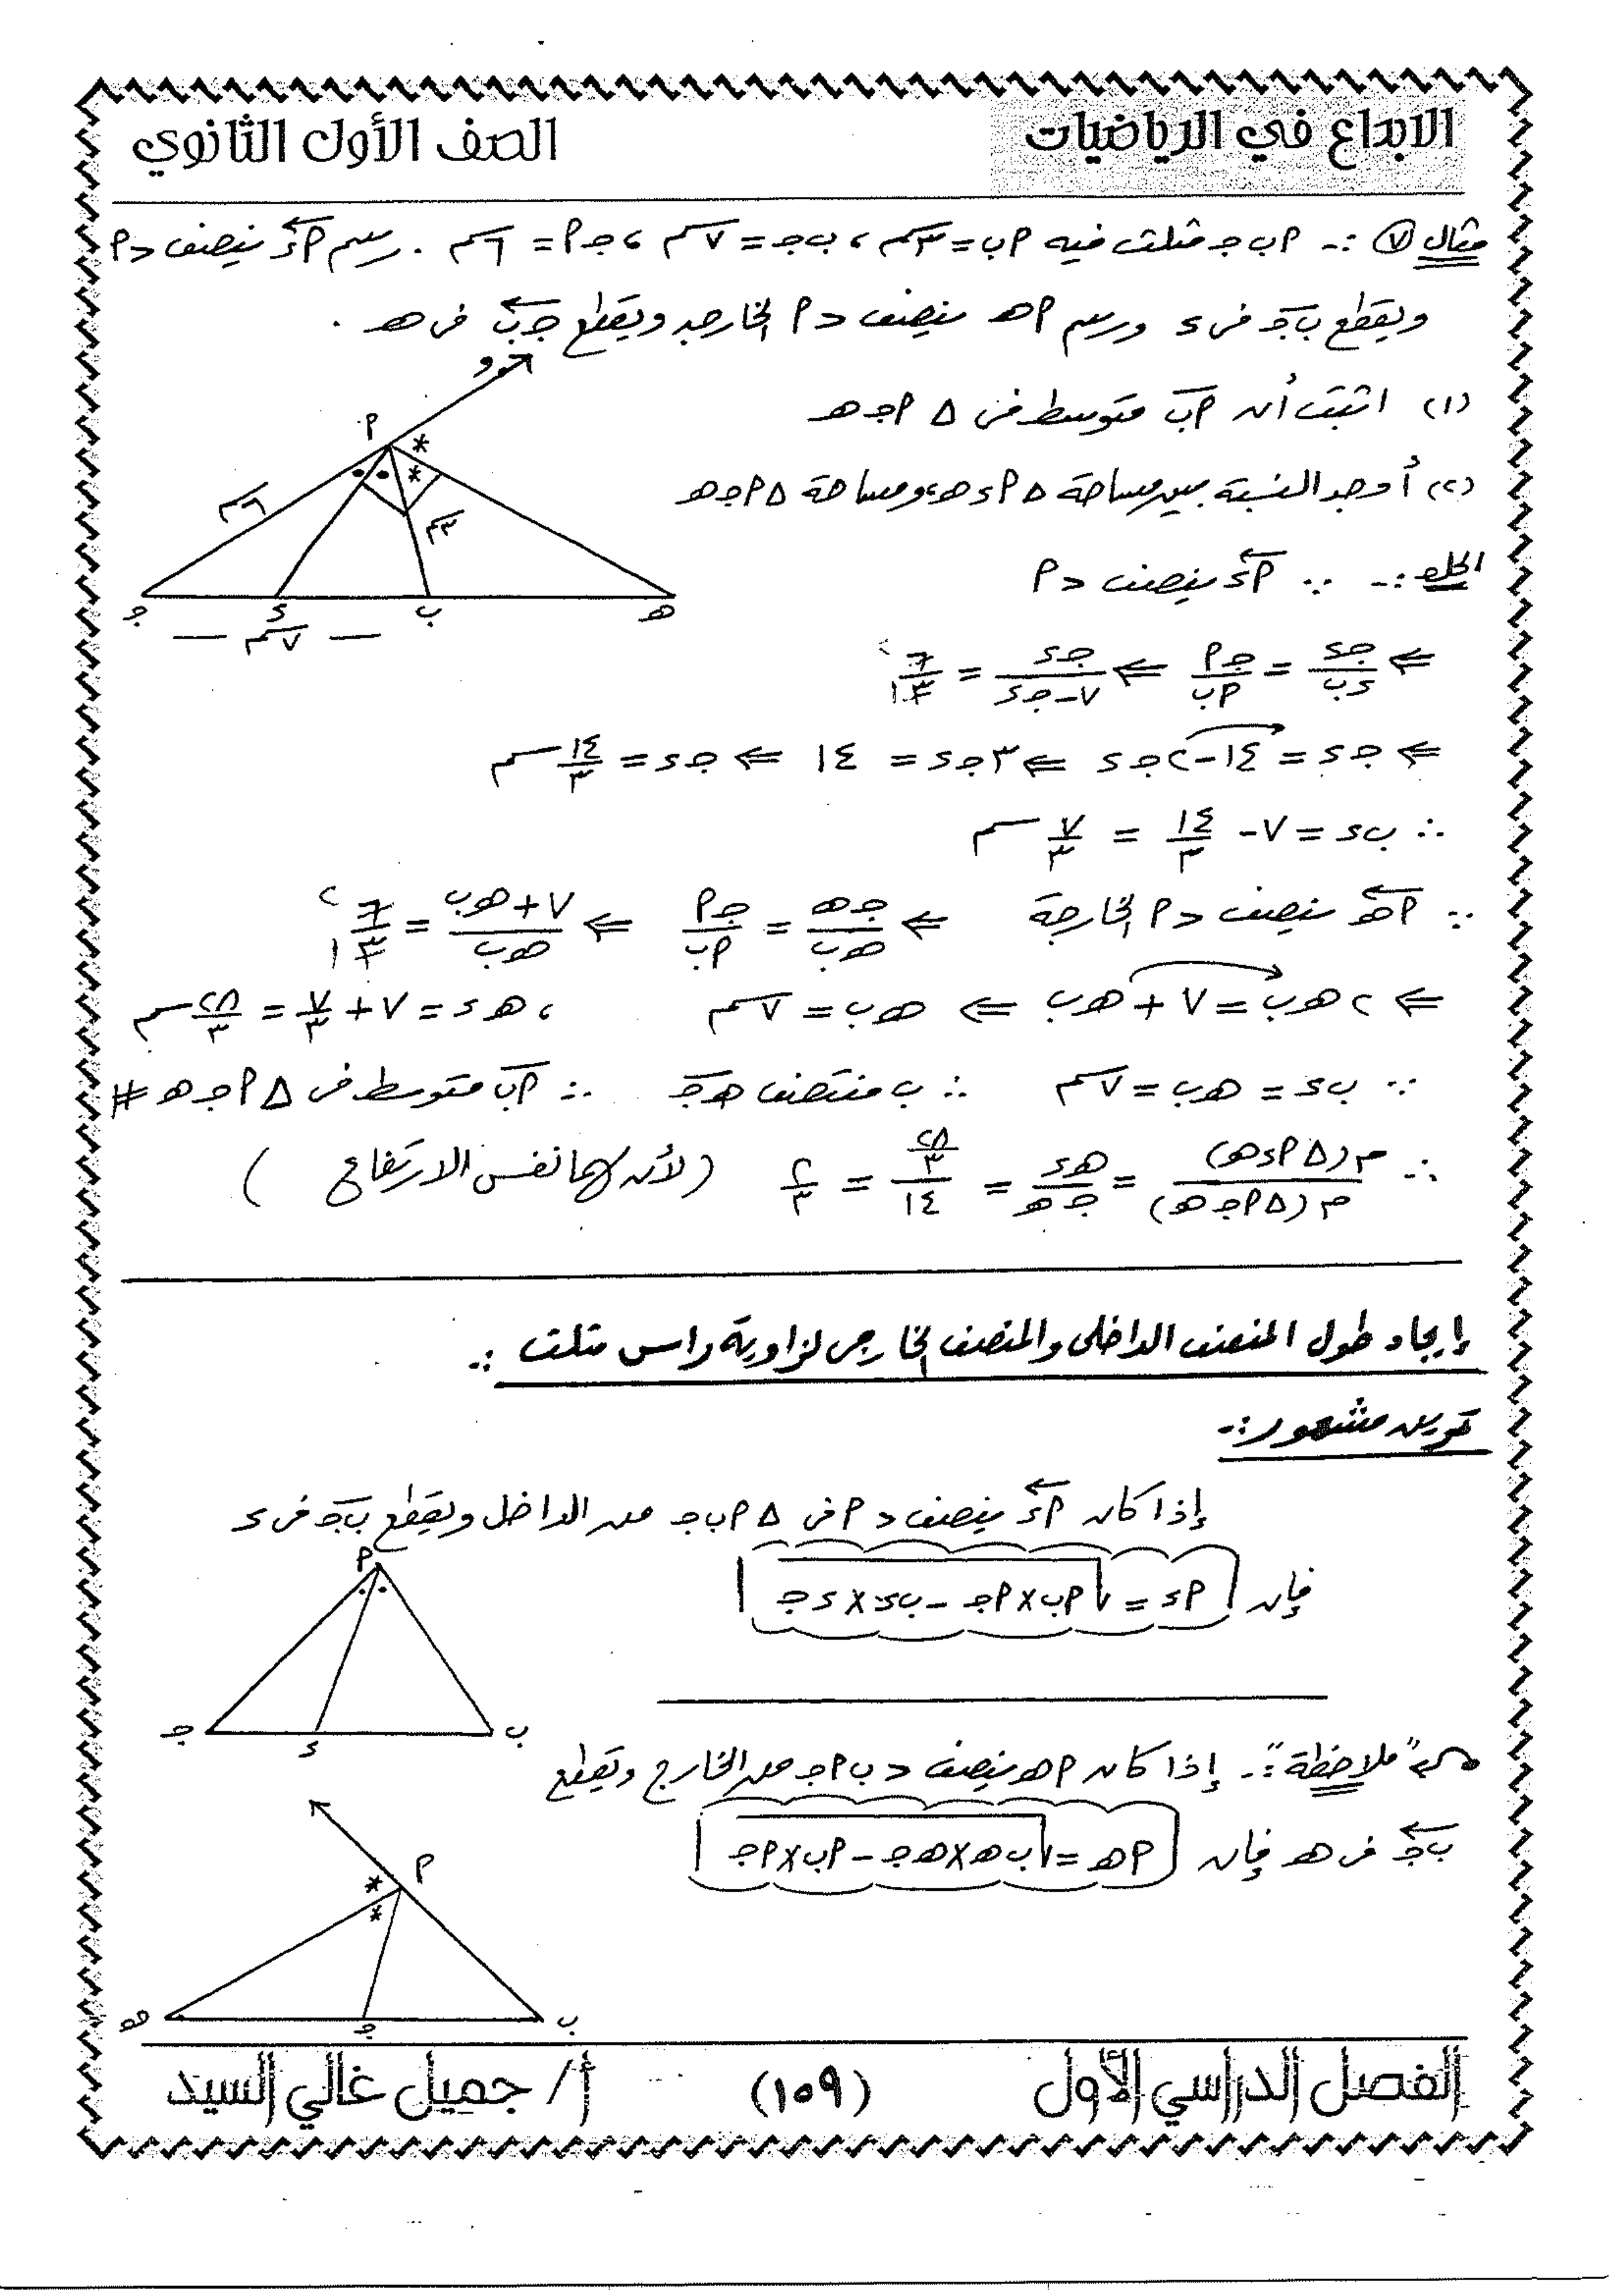 الابداع في الرياضيات
الصف الأول الثانوي
مثال (٧) :- أ ب جـ مثلث فيه أب = ٣سم ، ب جـ = ٧سم ، جـ أ = ٦سم . رسم أء ينصف د أ
ويقطع ب جـ فى ء ورسم أهـ ينصف د أ الخارجه ويقطع جـ ب فى هـ .
(١) اثبت أن أب متوسط فى Δ أ جـ هـ
(٢) أوجد النسبة بين مساحة Δ أ ء هـ ، ومساحة Δ أ جـ هـ
و
أ
٦سم
٣سم
جـ ء ب هـ
— ٧سم —
الحل :- ∵ أء ينصف د أ
⇐ جـ ء / ء ب = جـ أ / أ ب ⇐ جـ ء / ٧ - جـ ء = ٦ / ٣ ٢ ١
⇐ جـ ء = ١٤ - ٢ جـ ء ⇐ ٣ جـ ء = ١٤ ⇐ جـ ء = ١٤/٣ سم
∴ ب ء = ٧ - ١٤/٣ = ٧/٣ سم
∵ أهـ ينصف د أ الخارجة ⇐ جـ هـ / هـ ب = جـ أ / أ ب ⇐ ٧ + هـ ب / هـ ب = ٦ / ٣ ٢ ١
⇐ ٢ هـ ب = ٧ + هـ ب ⇐ هـ ب = ٧سم ، هـ ء = ٧ + ٧/٣ = ٢٨/٣ سم
∵ ب ء = هـ ب = ٧سم ∴ ب منتصف هـ جـ ∴ أب متوسط فى Δ أ جـ هـ #
∴ م (Δ أ ء هـ) / م (Δ أ جـ هـ) = هـ ء / جـ هـ = ٢٨/٣ / ١٤ = ٢/٣ (لأن لهما نفس الارتفاع )
إيجاد طول المنصف الداخلى والمنصف الخارجى لزاوية راس مثلث :-
تمرين مشهور :-
إذا كان أء ينصف د أ فى Δ أ ب جـ من الداخل ويقطع ب جـ فى ء
فإن أ ء = √ أ ب × أ جـ - ب ء × ء جـ
أ
جـ ء ب
"ملاحظة" :- إذا كان أهـ ينصف د ب أ جـ من الخارج ويقطع
ب جـ فى هـ فإن أ هـ = √ ب هـ × هـ جـ - أ ب × أ جـ
أ
هـ جـ ب
الفصل الدراسي الأول
(١٥٩)
أ / جميل غالي السيد